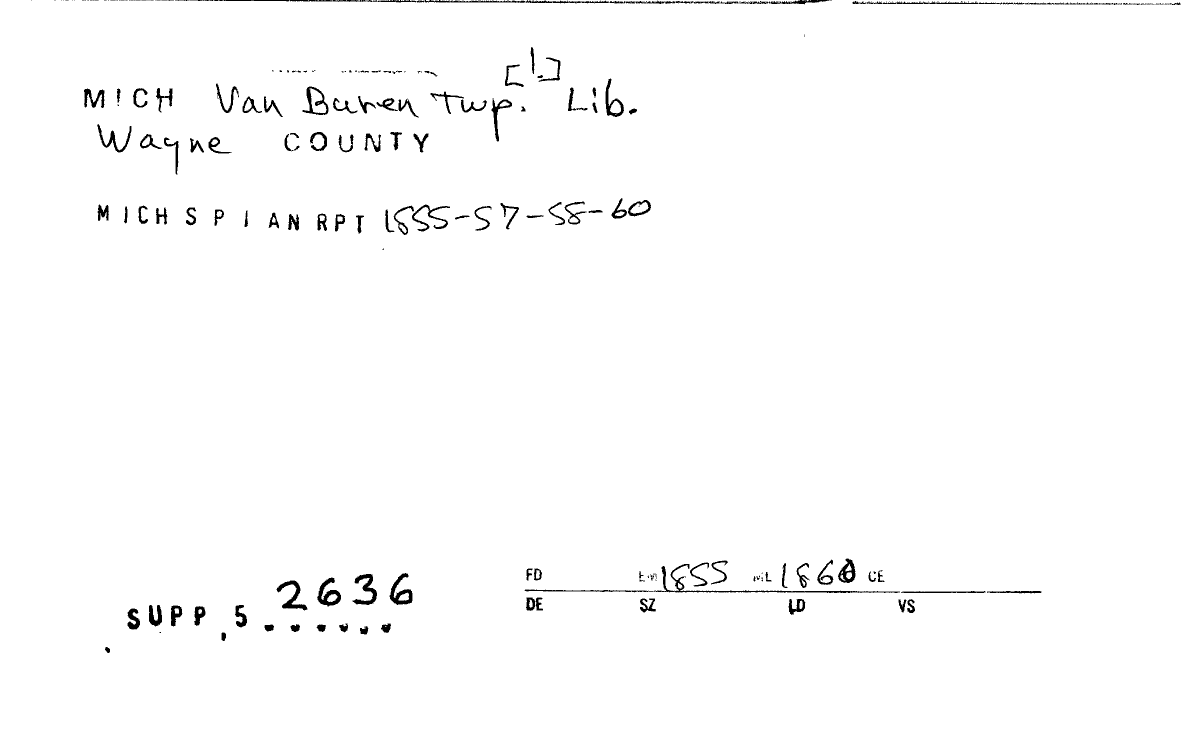 [1.]
MICH Van Buren Twp. Lib.
Wayne COUNTY
MICH S P I AN RPT 1855-57-58-60
2636
SUPP, 5 ......
FD 1855 1860 CE
DE SZ LD VS